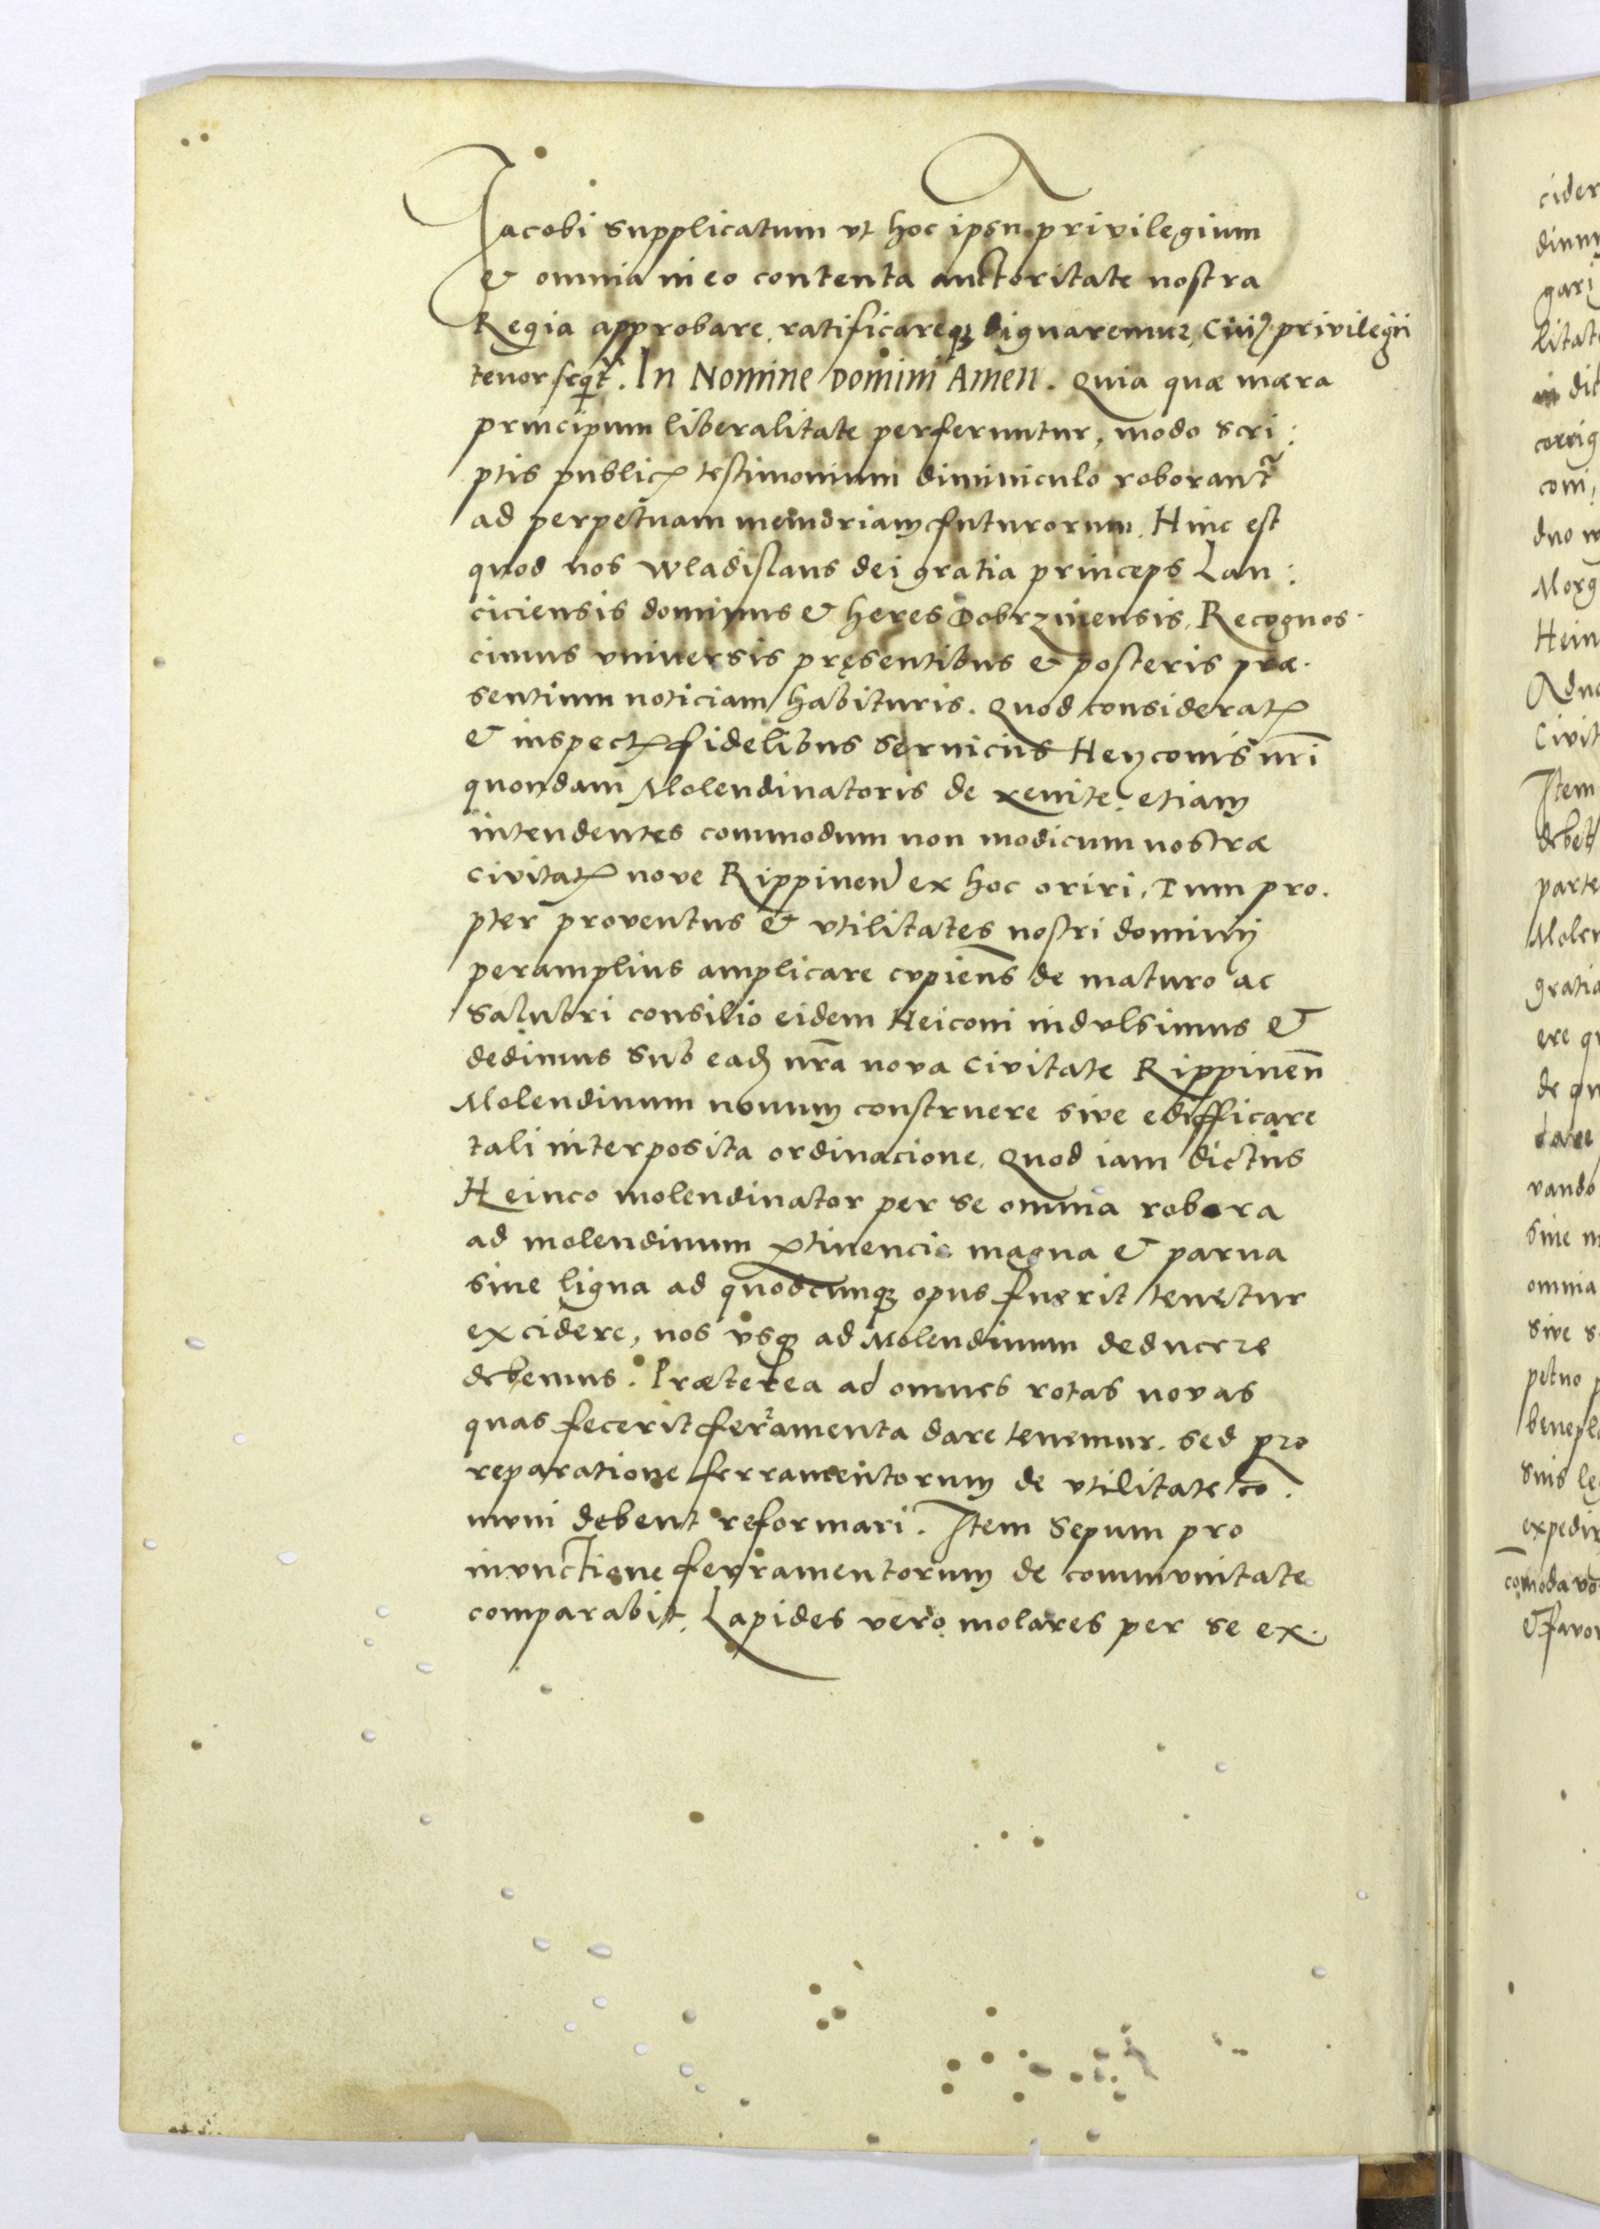 Jacobi supplicatum ut hoc ipsū privilegium
& omnia in eo contenta auctoritate nostra
Regia approbare, ratificareqȝ dignaremur, Cuiꝰ privilegii
tenor seqt̃. In Nomine Domini Amen. Quia quæ mæra
principum liberalitate perferuntur, modo scri:
ptis publicꝭ testimonium diminiculo roborant̃
ad perpetuam memoriam futurorum. Hinc est
quod nos Wladislaus dei gratia princeps Lan:
ciciensis dominus & heres Dobrzinensis, Recognos
cimus vniversis pręsentibus & posteris præ
sentium noticiam habituris. Quod consideratꝭ
& inspectꝭ fidelibus servicius Heyconis nr̃i
quondam Molendinatoris de xenite, etiam
intendentes commodum non modicum nostræ
civitatꝭ nove Rippinen̄ ex hoc oriri, Tum pro
pter proventus & vtilitates nostri dominij
peramplius amplicare cupiens de maturo ac
Salubri consilio eidem Heiconi indulsimus &
dedimus Sub eadȝ nr̃a nova Civitate Rippinēn
Molendinum novum construere sive edifficare
tali interposita ordinacione. Quod iam dictus
Heinco molendinator per se omnia robora
ad molendinum ꝑtinencia magna & parva
sive ligna ad quodcumqȝ opus fuerit tenetur
excidere, nos vsqȝ ad Molendinum deducere
debemus. Præterea ad omnes rotas novas
quas fecerit ferramenta dare tenemur. Sed pro
reparatione ferramentorum de vtilitate co
muni debent reformari. Item Sepum pro
inunctione ferramentorum de communitate
comparabit. Lapides vero molares per se ex
cider
gari
litat
dit
corrig
Morg
Hein
Civit
Item
debet
parte
Molen
gratia
ere q
dare
vando
sine
omnia
sive s
benepl
suis le
expedir
cōmoda
& favor